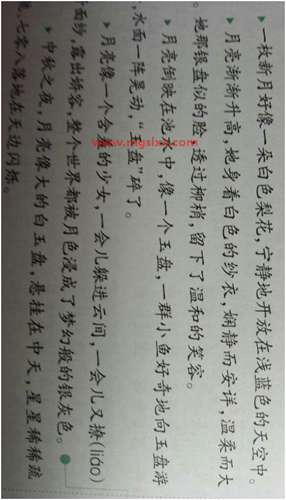 ▸ 一枚新月好像一朵白色梨花,宁静地开放在浅蓝色的天空中。
▸ 月亮渐渐升高,她身着白色的纱衣,娴静而安详,温柔而大
。她那银盘似的脸,透过柳梢,留下了温和的笑容。
▸ 月亮倒映在池水中,像一个玉盘,一群小鱼好奇地向玉盘游
,水面一阵晃动,“玉盘”碎了。
▸ 月亮像一个含羞的少女,一会儿躲进云间,一会儿又撩(liāo)
面纱,露出娇容,整个世界都被月色浸成了梦幻般的银灰色。
▸ 中秋之夜,月亮像大的白玉盘,悬挂在中天,星星稀稀疏
,七零八落地在天边闪烁。